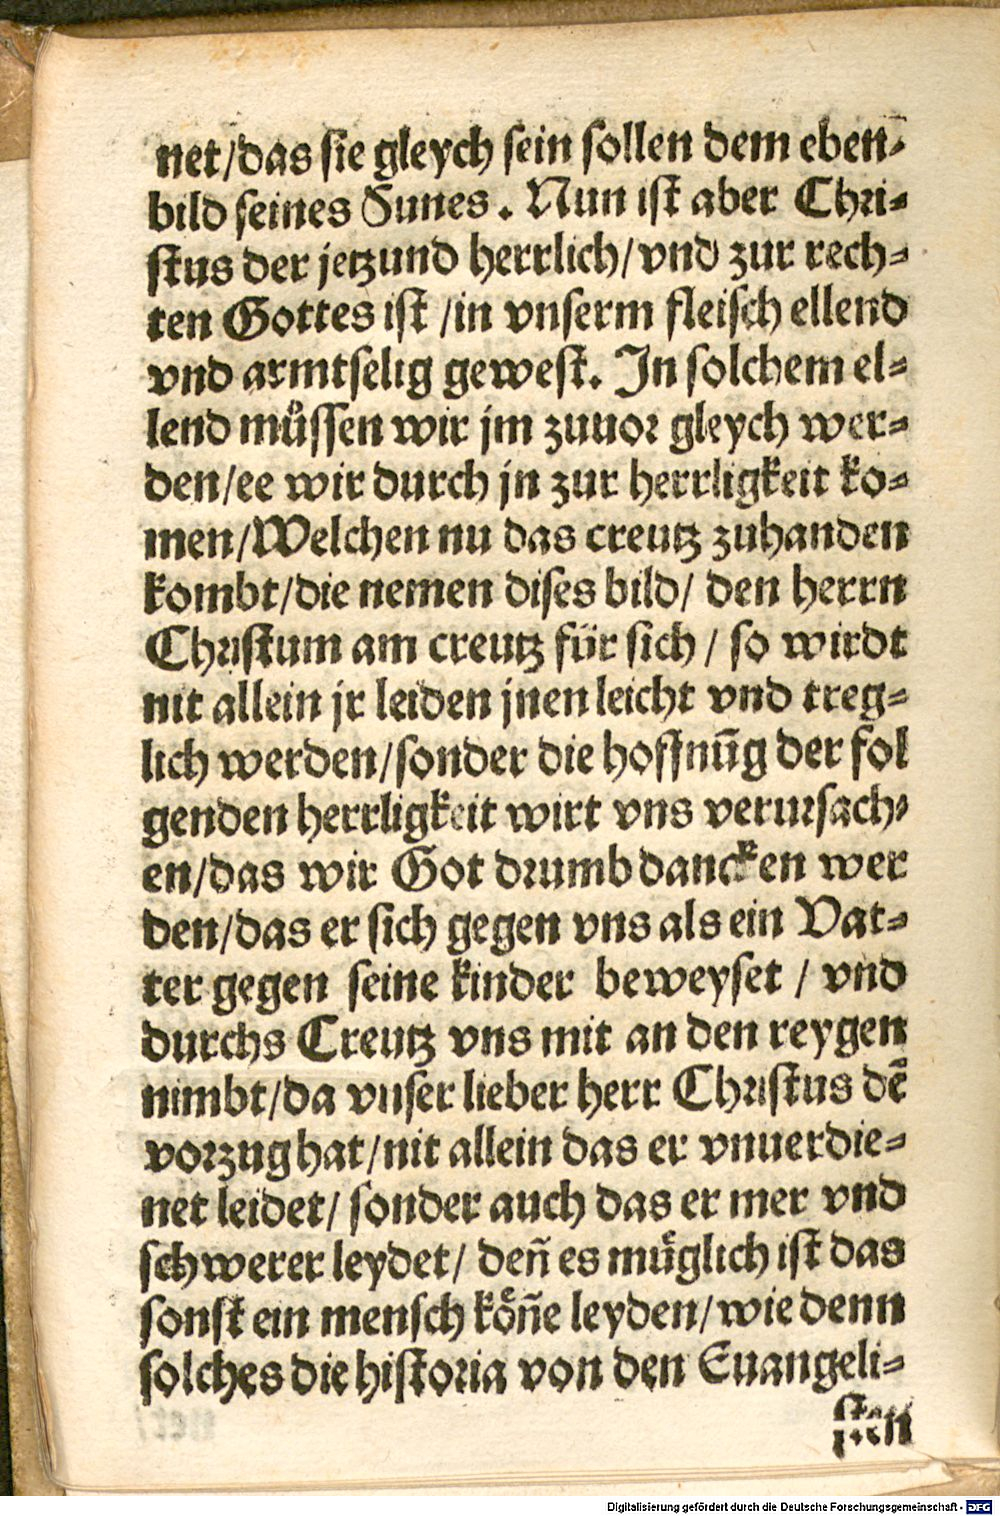 net/das sie gleych sein sollen dem eben-
bild seines Sunes. Nun ist aber Chri-
stus der jetzund herrlich/vnd zur rech-
ten Gottes ist /in vnserm fleisch ellend
vnd armtselig gewest. In solchem el-
lend müssen wir jm zuuor gleych wer-
den/ee wir durch jn zur herrligkeit ko-
men/Welchen nu das creutz zuhanden
kombt/die nemen dises bild/ den herrn
Christum am creutz für sich / so wirdt
nit allein jr leiden jnen leicht vnd treg-
lich werden/sonder die hoffnũg der fol
genden herrligkeit wirt vns verursach-
en/das wir Got drumb dancken wer
den/das er sich gegen vns als ein Vat-
ter gegen seine kinder beweyset / vnd
durchs Creutz vns mit an den reygen
nimbt/da vnser lieber herr Christus dẽ
vorzug hat/nit allein das er vnuerdie-
net leidet/ sonder auch das er mer vnd
schwerer leydet/ deñ es müglich ist das
sonst ein mensch köñe leyden/wie denn
solches die historia von den Euangeli-
sten
Digitalisierung gefördert durch die Deutsche Forschungsgemeinschaft - DFG